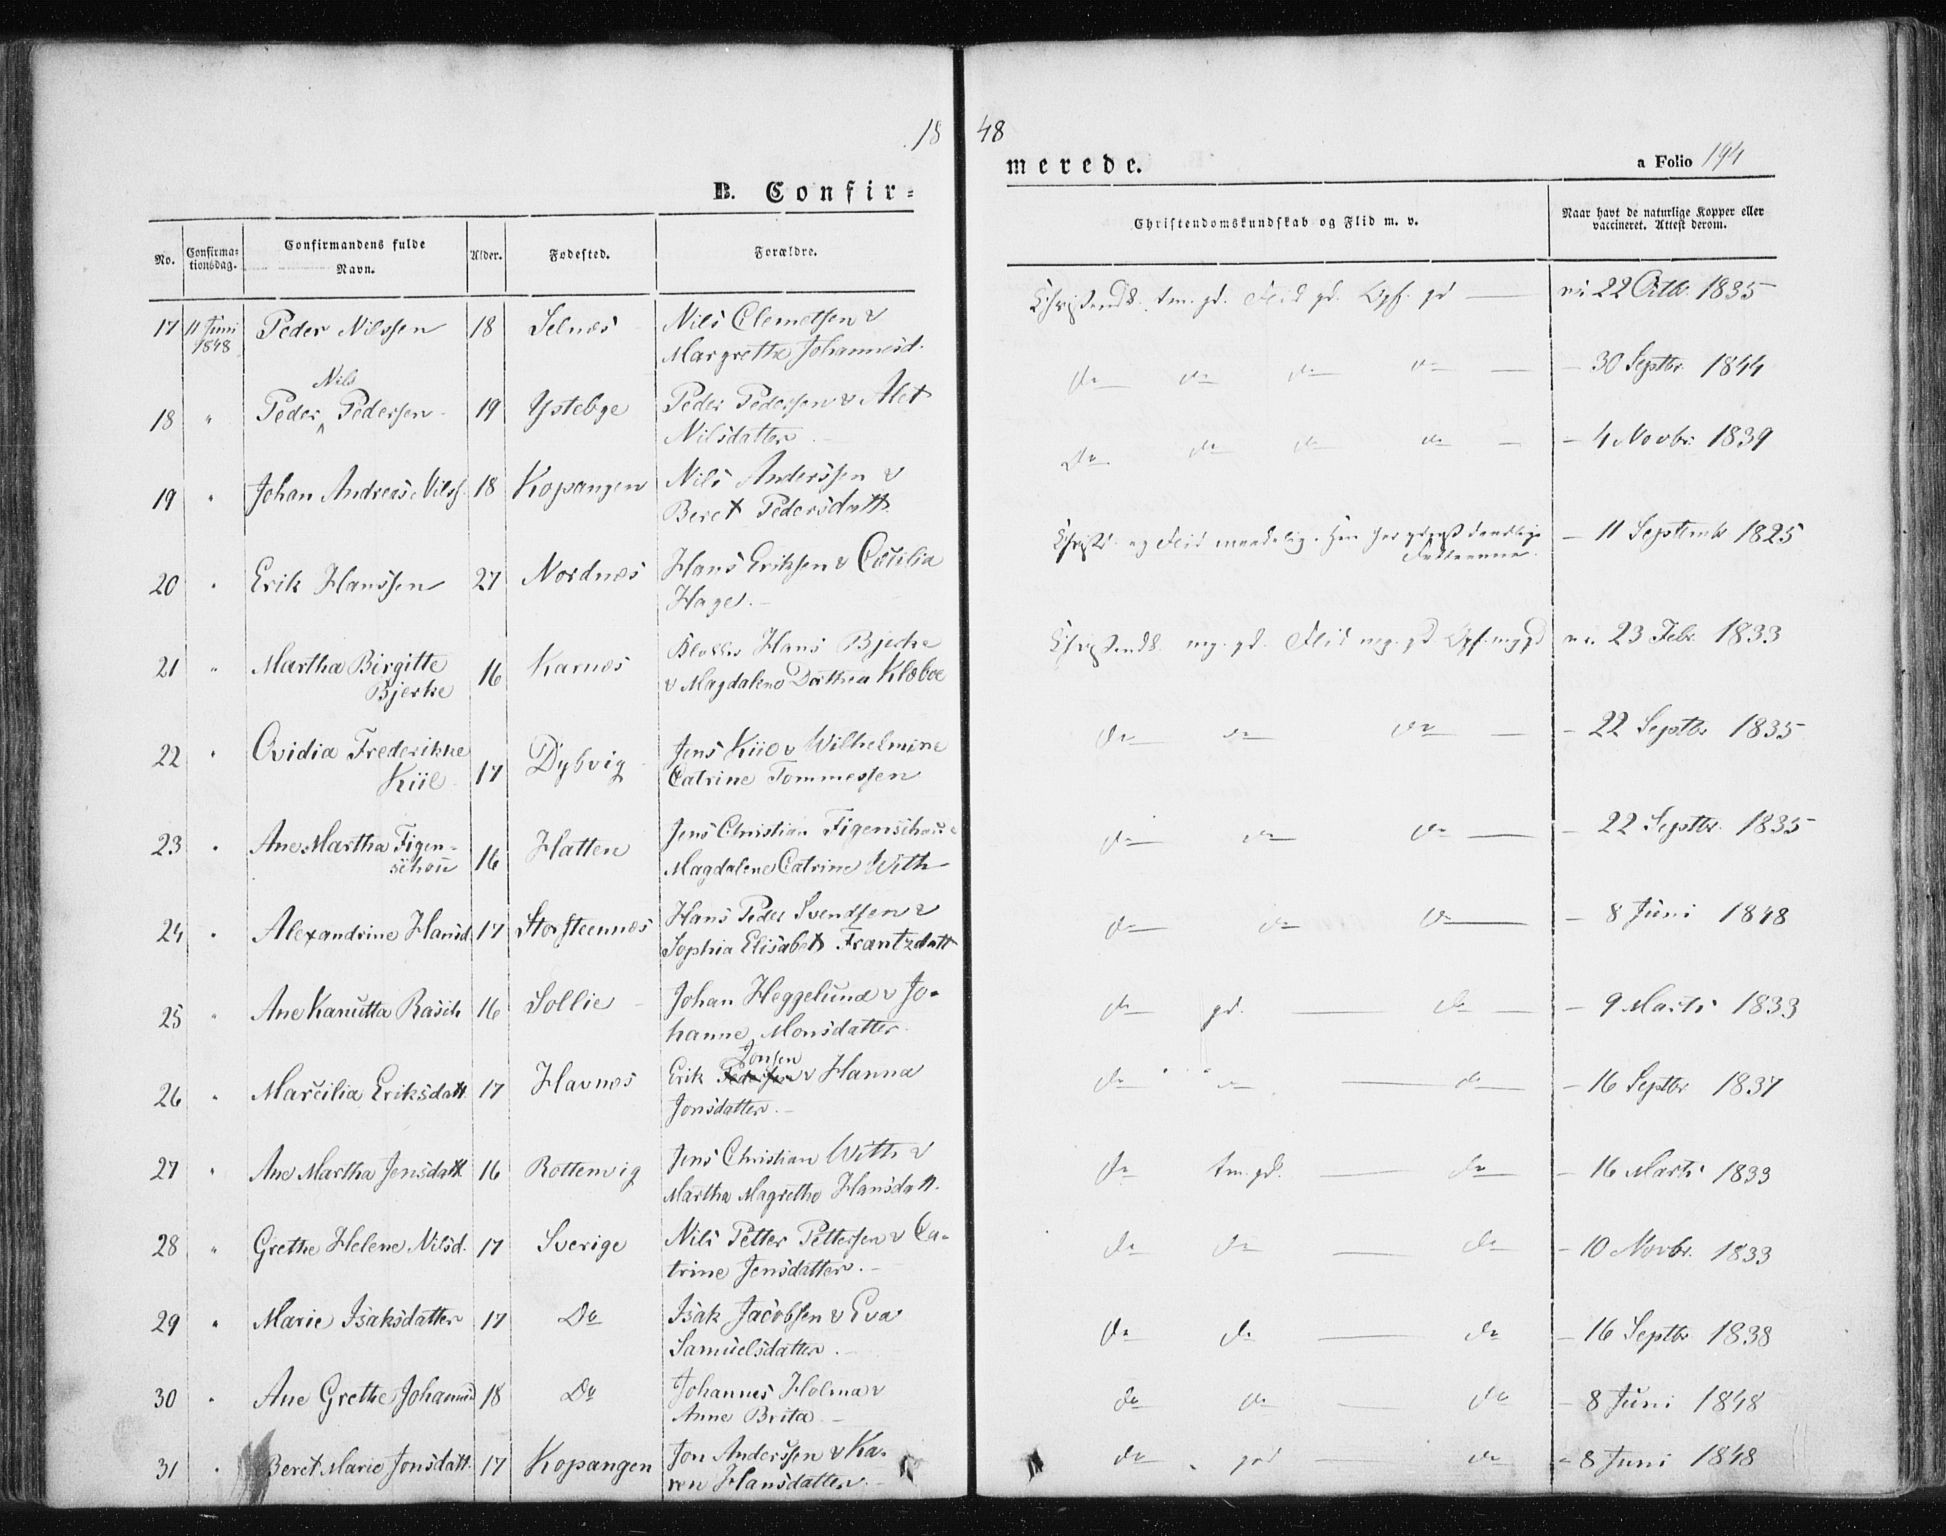 18 48
B. Confir=
merede.
a Folio 194
No.
Confirma=
tionsdag.
Confirmandens fulde
Navn.
Alder.
Fødested.
Forældre.
Christendomskundskab og Flid m. v.
Naar havt de naturlige Kopper eller
vaccineret. Attest derom.
17 11 Juni 1848 Peder Nilssen 18 Selnæs Nils Clemetsen &
Margrethe Johannesd.
Christends. tm. gd. Flid gd. Opf. gd — 22 Octbr. 1835
18 " Peder Nils Pedersen 19 Ystebye Peder Pedersen & Alet
Nilsdatter.
do do do do — 30 Septbr. 1844
19 " Johan Andreas Nilss. 18 Kopangen Nils Anderssen &
Beret Pedersdatt.
Do do do do — 4 Novbr. 1839
20 " Erik Hanssen 27 Nordnæs Hans Eriksen & Cecilia
Hage.
Christd. og Flid maadelig. — 11 Septemb 1825
21 " Martha Birgitte
Bjerke 16 Karnæs Hans Bjerke
& Magdalene Dorthea Klæboe
Christends. mg. gd. Flid mg. gd Opf. mg gd 23 Febr. 1833
22 " Ovidia Frederikke
Kiil 17 Dybvig Jens Kiil & Wilhelmine
Catrine Tommessen
do do do — 22 Septbr 1835
23 " Ane Martha Figen-
schou 16 Hatten Jens Christian Figenschou &
Magdalene Catrine With
do do do — 22 Septbr. 1835
24 " Alexandrine Hansd. 17 Storsteennæs Hans Peder Svendsen &
Sophia Elisabeth Frantzdatt
do do do — 8 Juni 1848
25 " Ane Kanutta Rasch 16 Sollie Johan Heggelund & Jo-
hanne Monsdatter.
do gd. do — 9 Marts 1833
26 " Marcilia Eriksdatt. 17 Havnæs Erik Pedersen Jonsen & Hanna
Jonsdatter.
do do do — 16 Septbr 1837
27 " Ane Martha Jensdatt 16 Rottenvig Jens Christian With &
Martha Magrethe Hansdatt.
do tm. gd. do — 16 Marts 1833
28 " Grethe Helene Nilsd. 17 Sverige Nils Petter Pettersen & Ca-
trine Jensdatter.
do do do — 10 Novbr. 1833
29 " Marie Isaksdatter 17 Do Isak Jacobsen & Eva
Samuelsdatter.
do do do — 16 Septbr 1838
30 " Ane Grethe Johannesd 18 Do Johannes Holma &
Anne Brita
do do do — 8 Juni 1848
31 " Beret Marie Jonsdatt. 17 Kopangen Jon Anderssen & Ka-
ren Hansdatter.
do god do — 8 Juni 1848